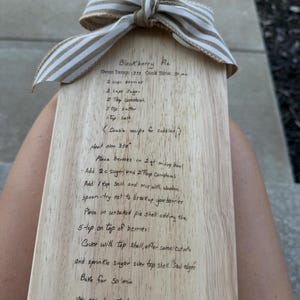 Blackberry Pie
Oven Temp: 350 Cook Time: 50 min
2 cups sugar
2 Tbsp cornstarch
1 Tsp salt
(Double recipe for cobbler)
Heat oven 350°
Place berries in 2 qt mixing bowl
Add 2 c sugar and 2 Tbsp cornstarch
Add 1 tsp salt and mix with wooden
spoon - try not to break up your berries
Place in unbaked pie shell adding the
5 tap on top of berries
Cover with Top shell, after some cutouts
and sprinkle sugar over top shell. Seal edges
Bake for 50 min